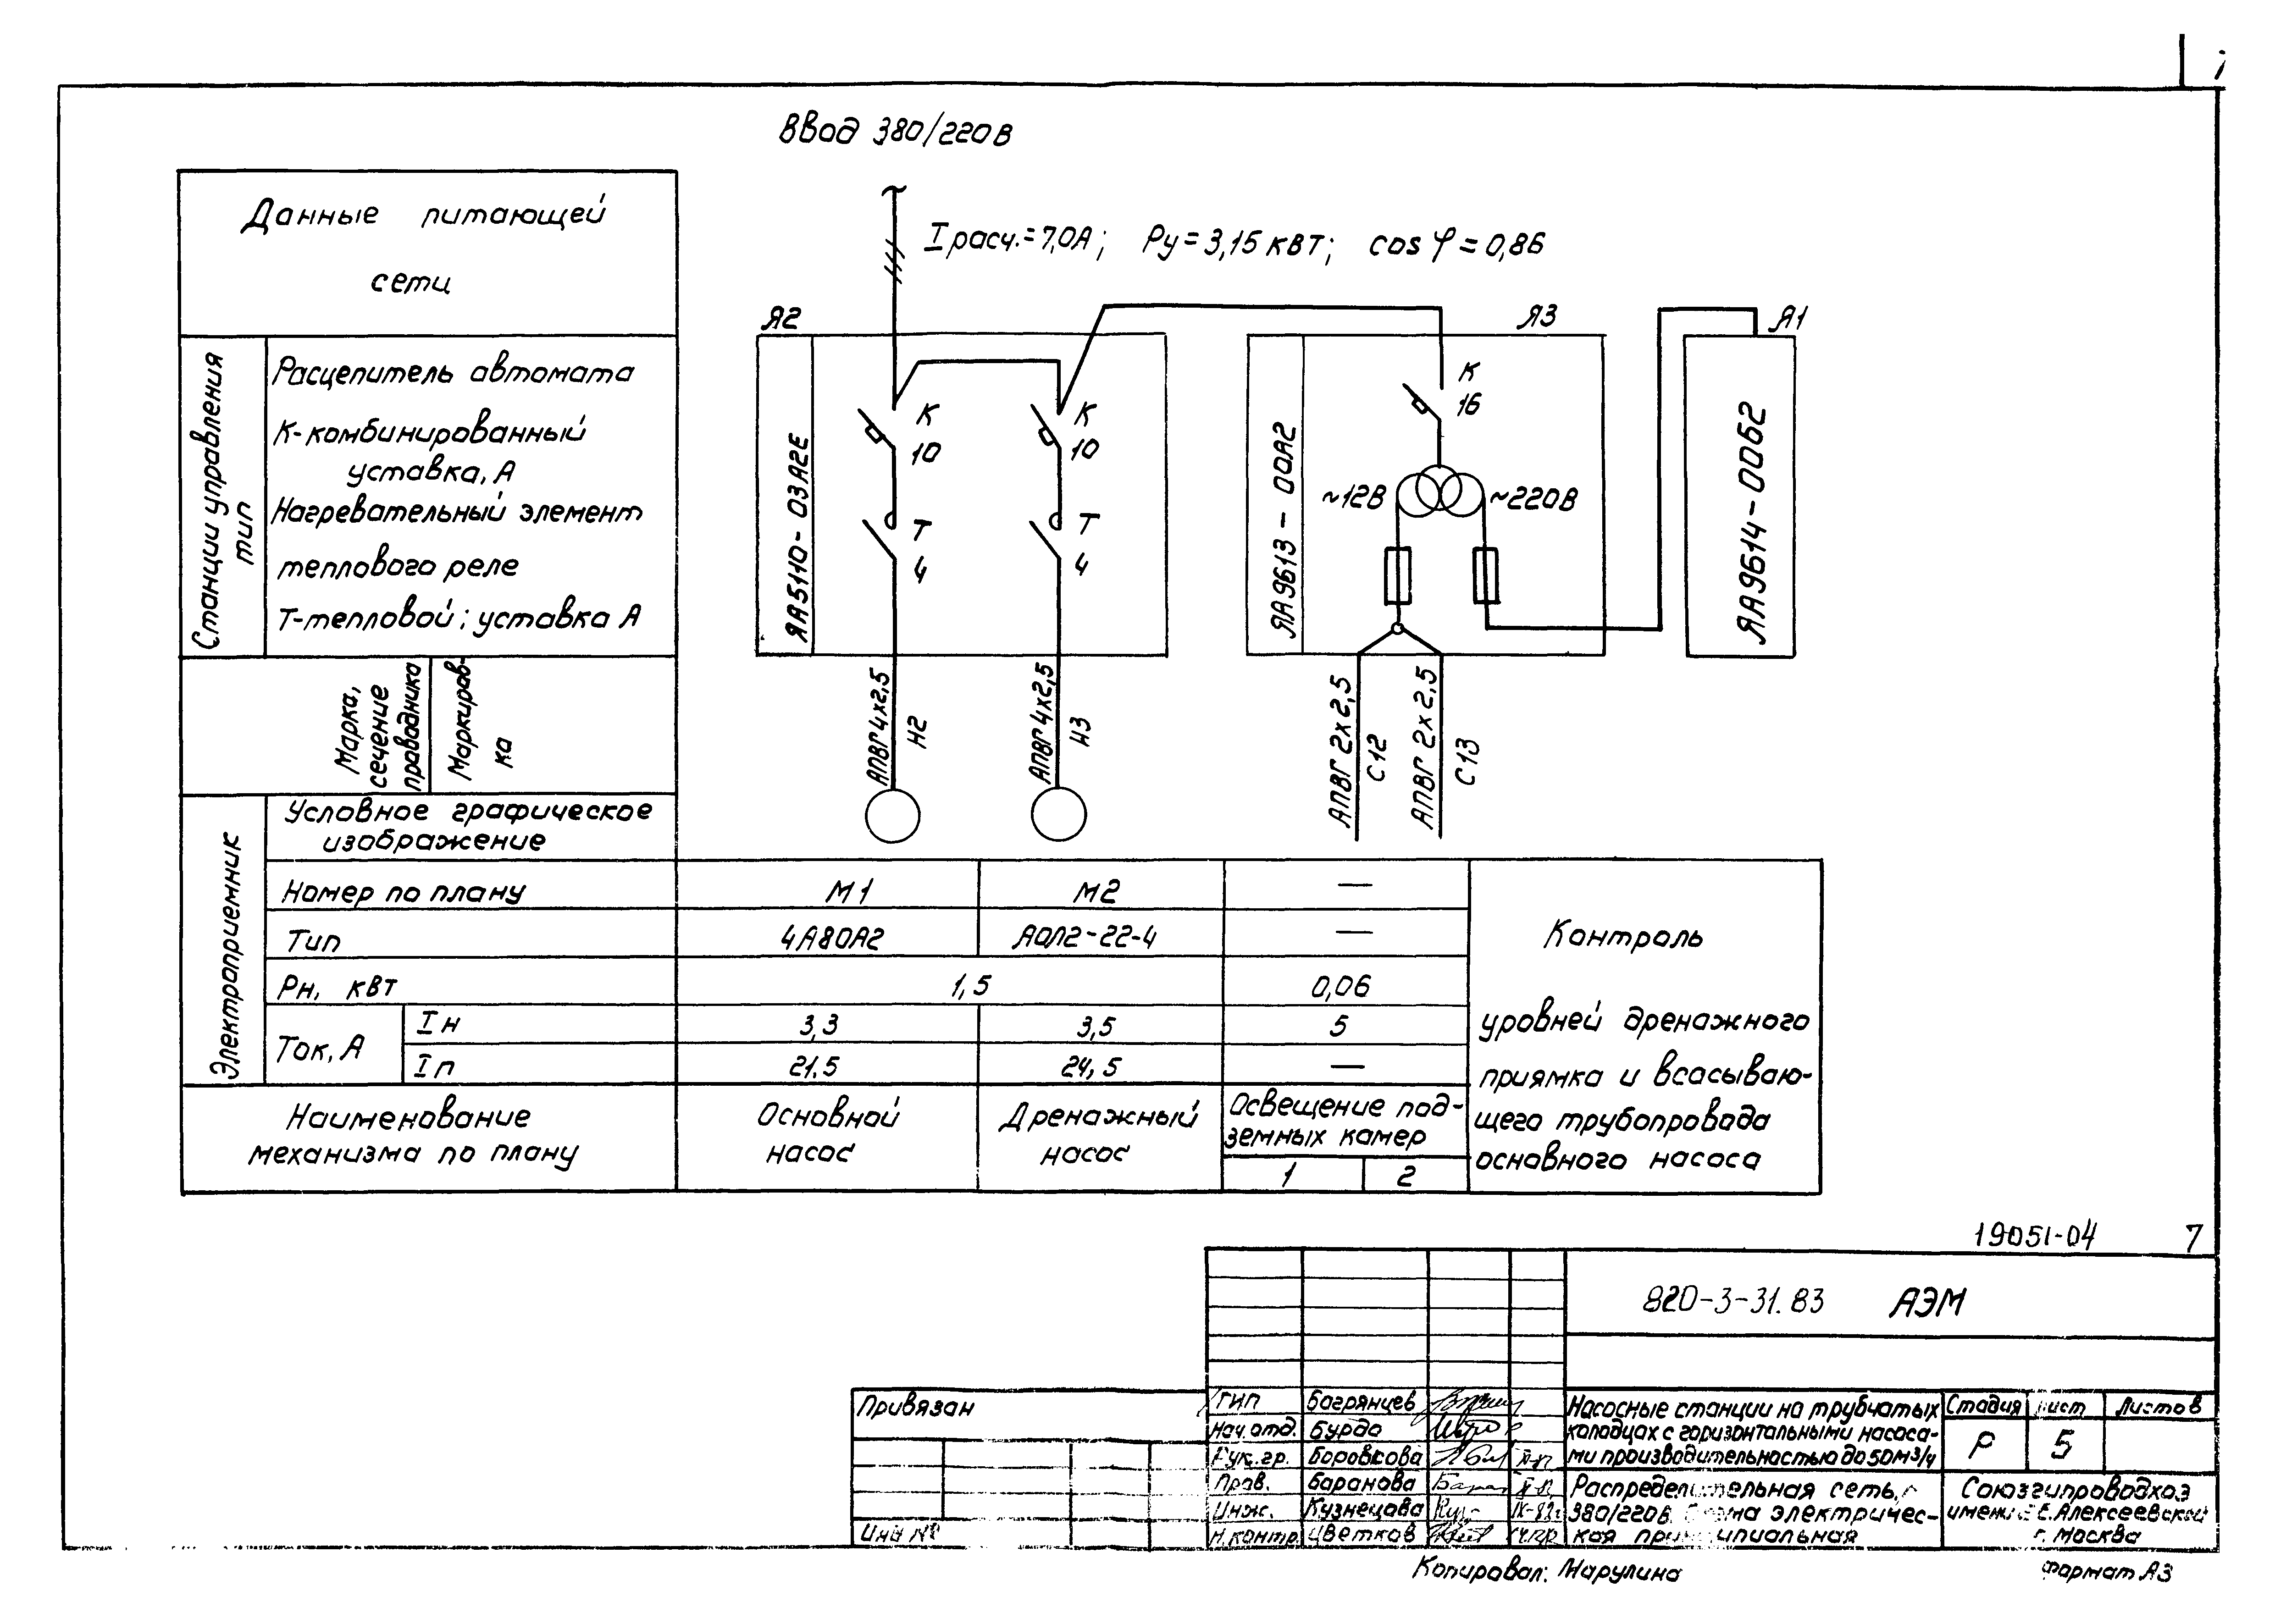 Ввод 380/220В
Данные питающей
сети
Iрасч.=7,0А; Ру=3,15 квт; cos φ=0,86
Станции управления
тип
Расцепитель автомата
К-комбинированный
уставка, А
Нагревательный элемент
теплового реле
Т-тепловой; уставка А
Я2
ЯА5110-03А2Е
К
10
К
10
Т
4
Т
4
Я3
ЯА9613-00А2
К
16
~12В
~220В
Я1
ЯА9614-00Б2
Марка,
сечение
проводника
Маркиров-
ка
АПВГ4х2,5
Н2
АПВГ4х2,5
Н3
АПВГ 2х2,5
С12
АПВГ 2х2,5
С13
Электроприемник
Условное графическое
изображение
Номер по плану
М1
М2
—
Тип
4А80А2
АОЛ2-22-4
—
Рн, квт
1,5
0,06
Ток, А
Iн
3,3
3,5
5
Iп
21,5
24,5
—
Наименование
механизма по плану
Основной
насос
Дренажный
насос
Освещение под-
земных камер
1
2
Контроль
уровней дренажного
приямка и всасываю-
щего трубопровода
основного насоса
19051-04
7
820-3-31.83 АЭМ
Привязан
Инв №
ГИП Багрянцев
Нач.отд. Бурда
Рук.гр. Боровкова
Пров. Баранова
Инж. Кузнецова IX-82г
Н.контр. Цветков
Насосные станции на трубчатых
колодцах с горизонтальными насоса-
ми производительностью до 50м³/ч
Стадия Лист Листов
Р 5
Распределительная сеть,
380/220В. Схема электричес-
кая принципиальная
Союзгипроводхоз
имени Е.Е.Алексеевского
г. Москва
Копировал: Марулина
Формат А3